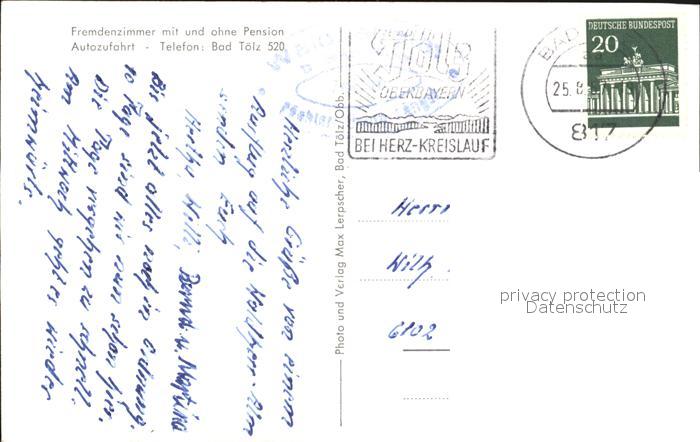 Fremdenzimmer mit und ohne Pension
Autozufahrt - Telefon: Bad Tölz 520
Herzliche Grüße von einem
Ausflug auf die Waldherr-Alm
senden Euch
Herta, Willi,
Bis jetzt alles noch in Ordnung.
10 Tage sind wir nun schon hier.
Die Tage vergehen zu schnell.
Am Mittwoch geht es wieder
heimwärts.
Photo und Verlag Max Lerpscher, Bad Tölz/Obb.
Tölz
OBERBAYERN
BEI HERZ-KREISLAUF
BAD
25.8.
817
DEUTSCHE BUNDESPOST
20
Herrn
Wilh.
6102
privacy protection
Datenschutz